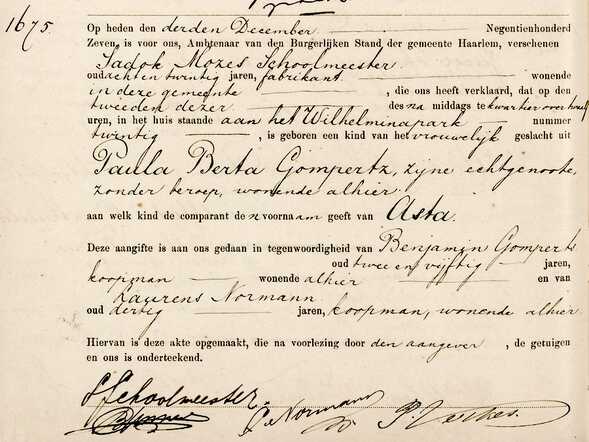 1675
Op heden den derden December Negentienhonderd
Zeven, is voor ons, Ambtenaar van den Burgerlijken Stand der gemeente Haarlem, verschenen
Sadok Mozes Schoolmeester
oud achten twintig jaren, fabrikant wonende
in deze gemeente , die ons heeft verklaard, dat op den
tweeden dezer des na middags te kwartier over
uren, in het huis staande aan het Wilhelminapark nummer
twintig , is geboren een kind van het vrouwelijk geslacht uit
Paula Berta Gompertz, zijne echtgenoote,
zonder beroep, wonende alhier.
aan welk kind de comparant de n voornaam geeft van Asta.
Deze aangifte is aan ons gedaan in tegenwoordigheid van Benjamin Gomperts
oud twee en vijftig jaren,
koopman wonende alhier en van
Laurens Normann
oud dertig jaren, koopman, wonende alhier.
Hiervan is deze akte opgemaakt, die na voorlezing door den aangever , de getuigen
en ons is onderteekend.
Schoolmeester
Normann